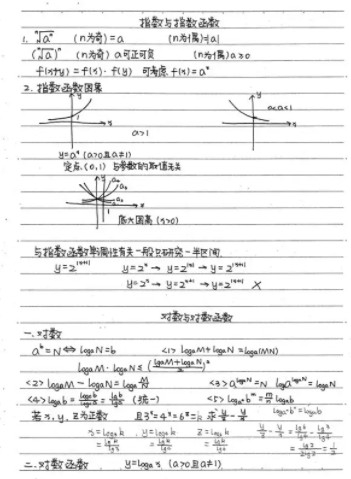 指数与指数函数
1. ⁿ√aⁿ (n为奇)=a (n为偶)=|a|
(ⁿ√a)ⁿ (n为奇) a可正可负 (n为偶) a≥0
f(x+y)=f(x)·f(y) 可考虑 f(x)=aˣ
2. 指数函数图象
y
y
1
x
x
a>1
0<a<1
y=aˣ (a>0且a≠1)
定点(0,1) 与参数的取值无关
底大图高 (x>0)
与指数函数单调性有关一般只研究一半区间
y=2^|x+1| y=2ˣ → y=2^|x| → y=2^|x+1|
y=2ˣ → y=2^x+1 → y=2^|x+1| ×
对数与对数函数
一、对数
aᵇ=N ⇔ logₐN=b <1> logₐM+logₐN=logₐ(MN)
logₐM·logₐN≤(logₐM+logₐN/2)²
<2> logₐM-logₐN=logₐM/N <3> a^logₐN=N logₐa^logₐN=logₐN
<4> logₐb= = lgb/lga (统一) <5> logₐₙbᵐ=m/n logₐb
若x,y,z为正数 且3ˣ=4ʸ=6ᶻ=k 求
x=log₃k y=log₄k z=log₆k
=lgk/lg3 =lgk/lg4 =lgk/lg6
二、对数函数 y=logₐx (a>0且a≠1)